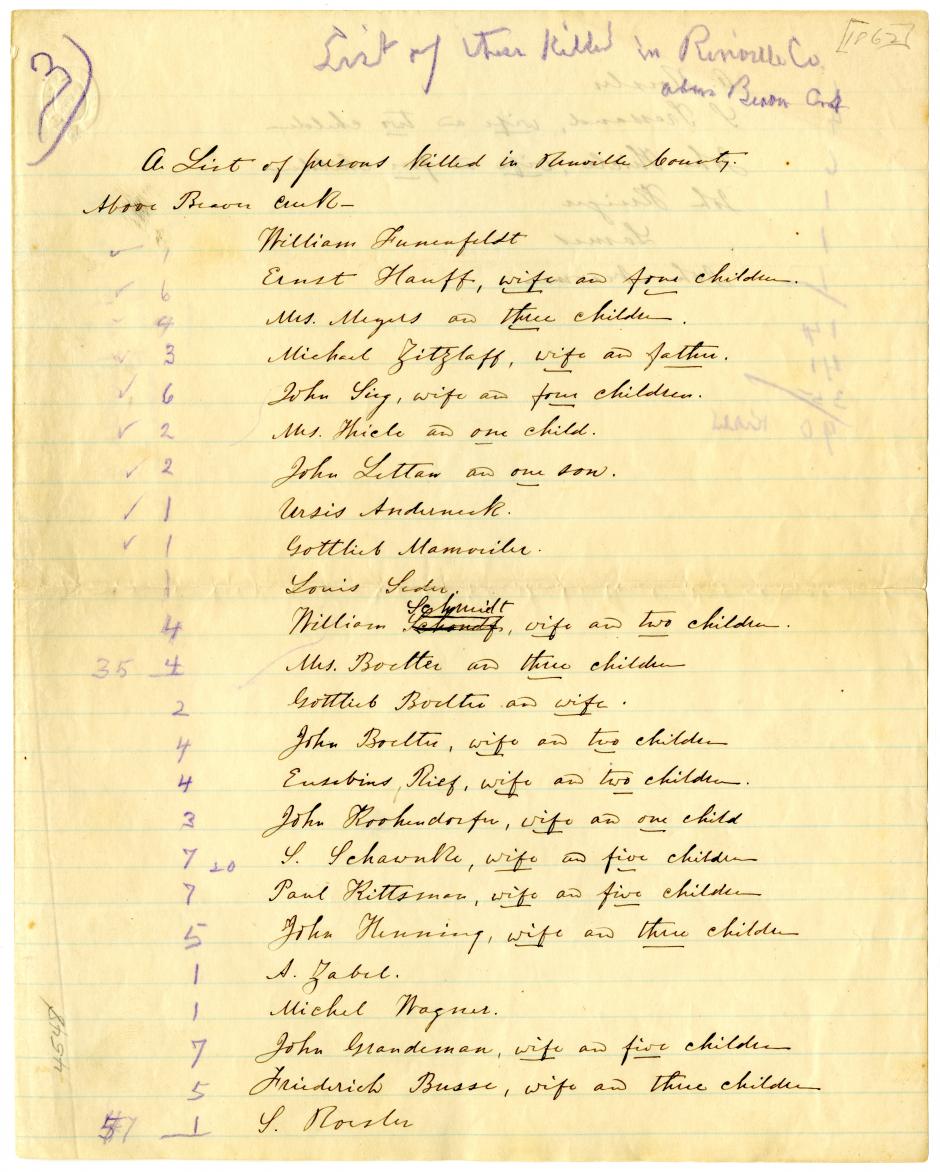 3)
[1862]
List of those Killed in Renville Co.
above Beaver Creek
A List of persons killed in Renville County.
Above Beaver creek—
✓ 1 William Funenfeldt
✓ 6 Ernst Hauff, wife an four children.
4 Mrs. Meyers an three children.
✓ 3 Michael Zitzlaff, wife an father.
✓ 6 John Sieg, wife an four children.
✓ 2 Mrs. Thiele an one child.
✓ 2 John Lettau an one son.
✓ 1 Ursis Anderneck.
✓ 1 Gottlieb Mamweiler.
1 Louis Seder,
Schmidt
4 William Schondf, wife an two children.
35 4 Mrs. Boelter an three children
2 Gottlieb Boelter an wife.
4 John Boelter, wife an two children
4 Eusebius, Rief, wife an two children.
3 John Kochendorfer, wife an one child
7 20 S. Schawnke, wife an five children
7 Paul Kittsman, wife an five children
5 John Henning, wife an three children
1 A. Zabel.
1 Michel Wagner.
7 John Grandeman, wife an five children
5 Friederich Busse, wife an three children
1 S. Roesler
4548